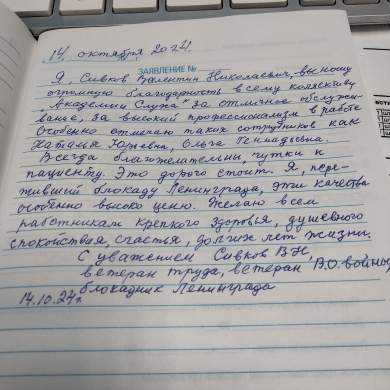 14 октября 2024.
ЗАЯВЛЕНИЕ №
Я, Сивков Валентин Николаевич, выношу
огромную благодарность всему коллективу
"Академии Слуха" за отличное обслужи-
вание, за высокий профессионализм в работе
Особенно отмечаю таких сотрудников как
Наталья Юрьевна, Ольга Геннадьевна.
Всегда благожелательны, чутки к
пациенту. Это дорого стоит. Я, пере-
живший блокаду Ленинграда, эти качества
особенно высоко ценю. Желаю всем
работникам крепкого здоровья, душевного
спокойствия, счастья, долгих лет жизни.
С уважением Сивков В.Н,
ветеран труда, ветеран В.О. войны,
блокадник Ленинграда
14.10.24г.